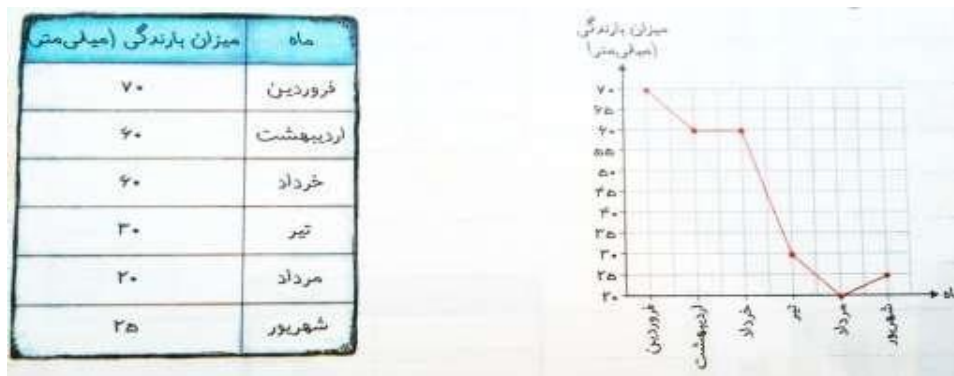 ماه میزان بارندگی (میلی‌متر)
فروردین ۷۰
اردیبهشت ۶۰
خرداد ۶۰
تیر ۳۰
مرداد ۲۰
شهریور ۲۵
میزان بارندگی
(میلی‌متر)
۷۰
۶۵
۶۰
۵۵
۵۰
۴۵
۴۰
۳۵
۳۰
۲۵
۲۰
ماه
فروردین
اردیبهشت
خرداد
تیر
مرداد
شهریور